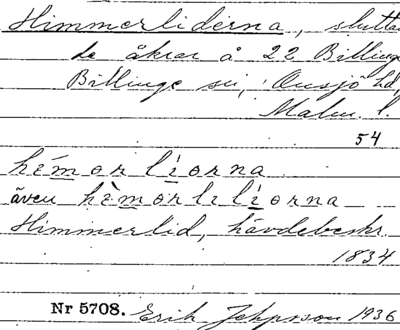 Himmerliderna, slutta
de åkrar å 22 Billinge
Billinge sn, Onsjö hd,
Malm. l.
54
hémorlíorna
även hèmórlilíorna
Himmerlid, hävdebeskr.
1834
Nr 5708. Erik Jeppsson 1936